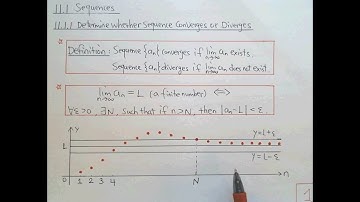 11.1 Sequences
11.1.1 Determine whether Sequence Converges or Diverges
Definition: Sequence {an} converges if lim an exists.
n→∞
Sequence {an} diverges if lim an does not exist.
n→∞
lim an = L (a finite number) ⟺
n→∞
∀ε>0, ∃N, such that if n>N, then |an-L| < ε.
y
y=L+ε
L
y=L-ε
0 1 2 3 4 N n
1